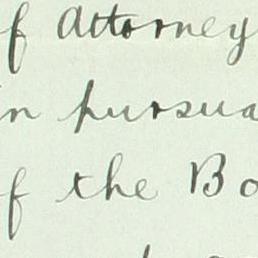 f Attorney
in pursua
of the Bo